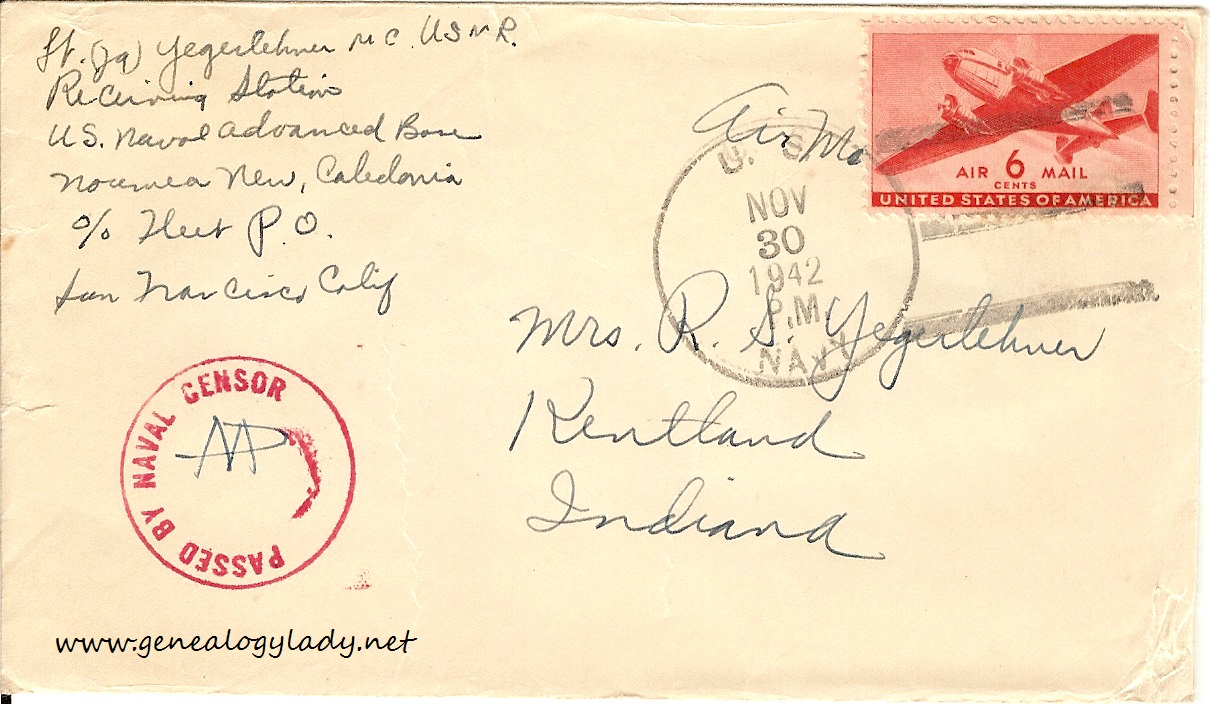 Lt. (jg) Yegerlehner M C. U S N R.
Receiving Station
U.S. Naval Advanced Base
Noumea New, Caledonia
c/o Fleet P.O.
San Francisco Calif
Air Ma
AIR 6 MAIL
CENTS
UNITED STATES OF AMERICA
U. S.
NOV
30
1942
P.M
NAVY
Mrs. R. S. Yegerlehner
Kentland
Indiana
PASSED BY NAVAL CENSOR
www.genealogylady.net